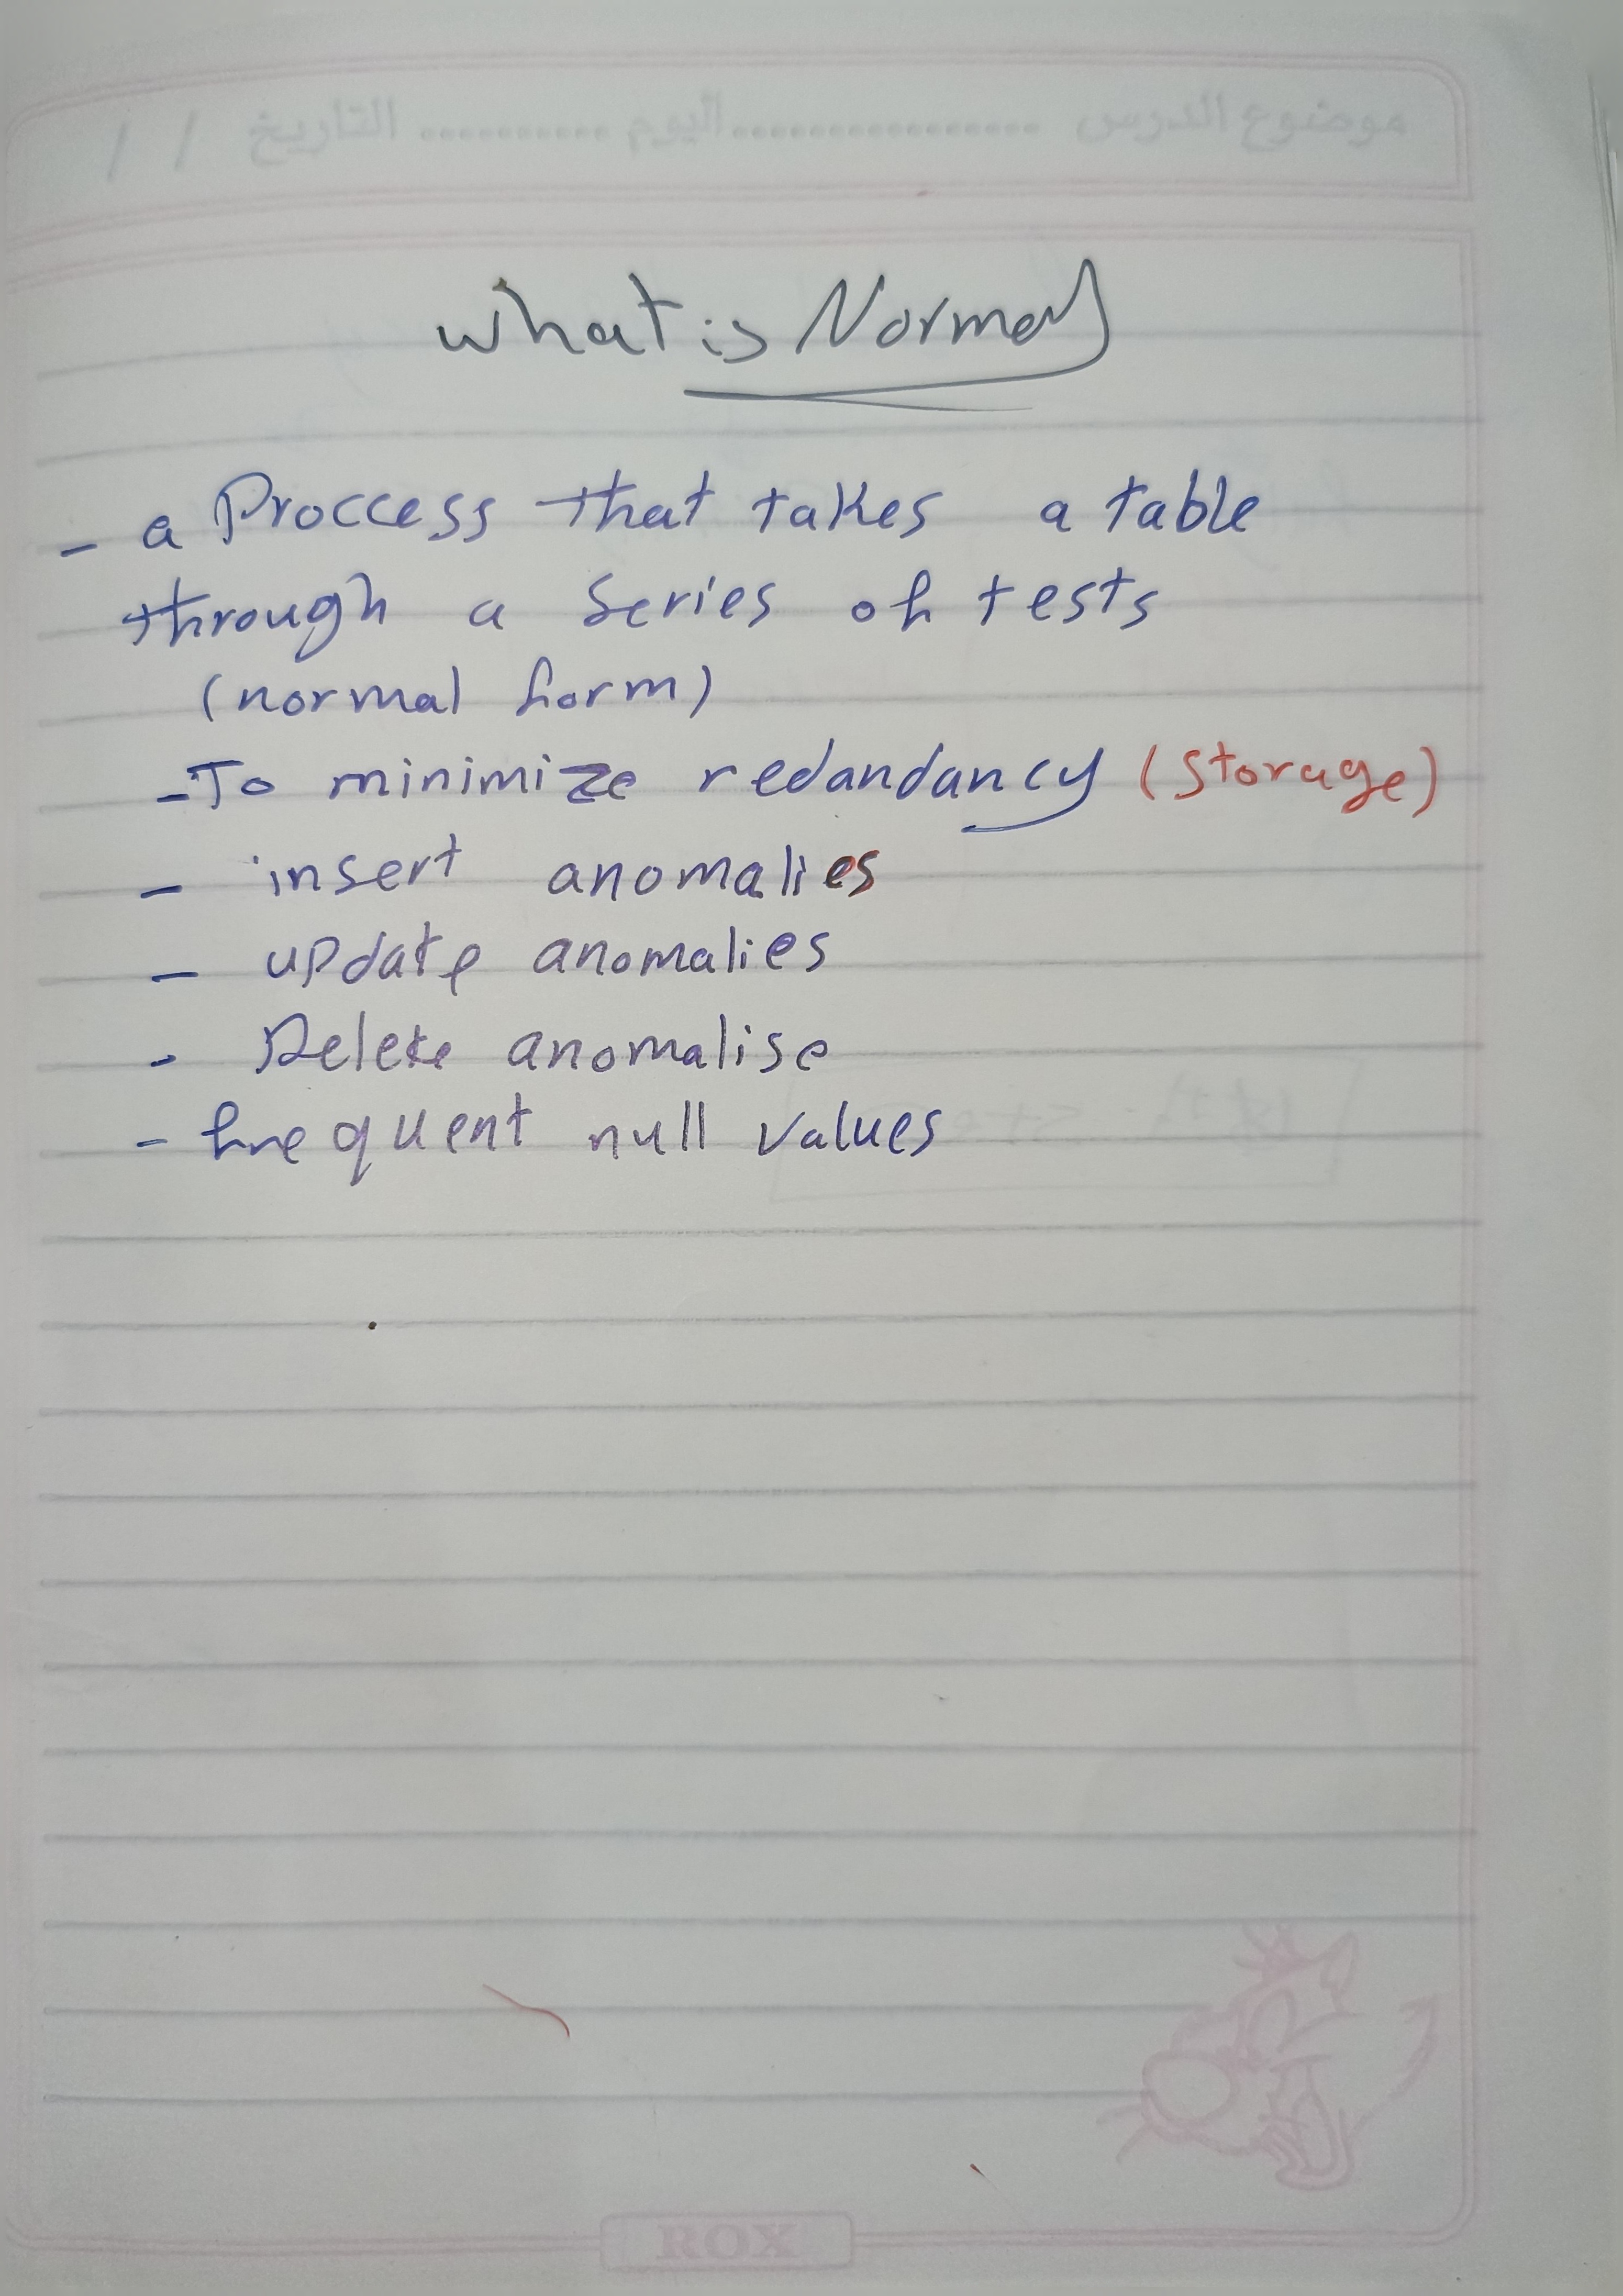 موضوع الدرس ................ اليوم .......... التاريخ / /
what is Normal
- a Proccess that takes a table
through a series of tests
(normal form)
- To minimize redandancy (storage)
- insert anomalies
- update anomalies
- Delete anomalise
- frequent null values
ROX